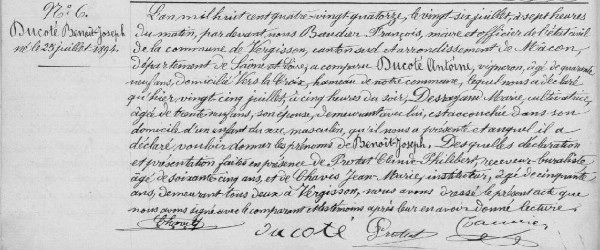 N° 6.
Ducoté Benoit-Joseph
né le 25 juillet 1894.
L'an mil huit cent quatre-vingt quatorze, le vingt six juillet, à sept heures
du matin, par devant, nous Baudier François, maire et officier de l'état civil
de la commune de Vergisson, canton sud et arrondissement de Mâcon,
département de Saône et Loire, a comparu Ducoté Antoine, vigneron, âgé de quarante
neuf ans, domicilié Vers la Croix, hameau de notre commune, lequel nous a déclaré
qu'hier, vingt cinq juillet, à cinq heures du soir, Marie, cultivatrice,
âgée de trente neuf ans, son épouse, demeurant avec lui, est accouchée dans son
domicile d'un enfant du sexe masculin, qu'il nous a présenté et auquel il a
déclaré vouloir donner les prénoms de Benoit-Joseph. Desquelles déclaration
et présentation faites en présence de Protat Philibert, receveur buraliste,
âgé de soixante cinq ans, et de Jean-Marie, instituteur, âgé de cinquante
ans, demeurant tous deux à Vergisson, nous avons dressé le présent acte que
nous avons signé avec le comparant et les témoins après leur en avoir donné lecture.
Ducoté Protat